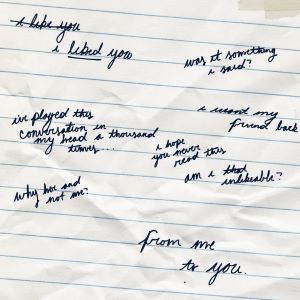 i like you
i liked you
was it something
i said?
i've played this
conversation in
my head a thousand
times...
i want my
friend back
i hope
you never
read this
am i that
unlikeable?
why her and
not me?
from me
to you.